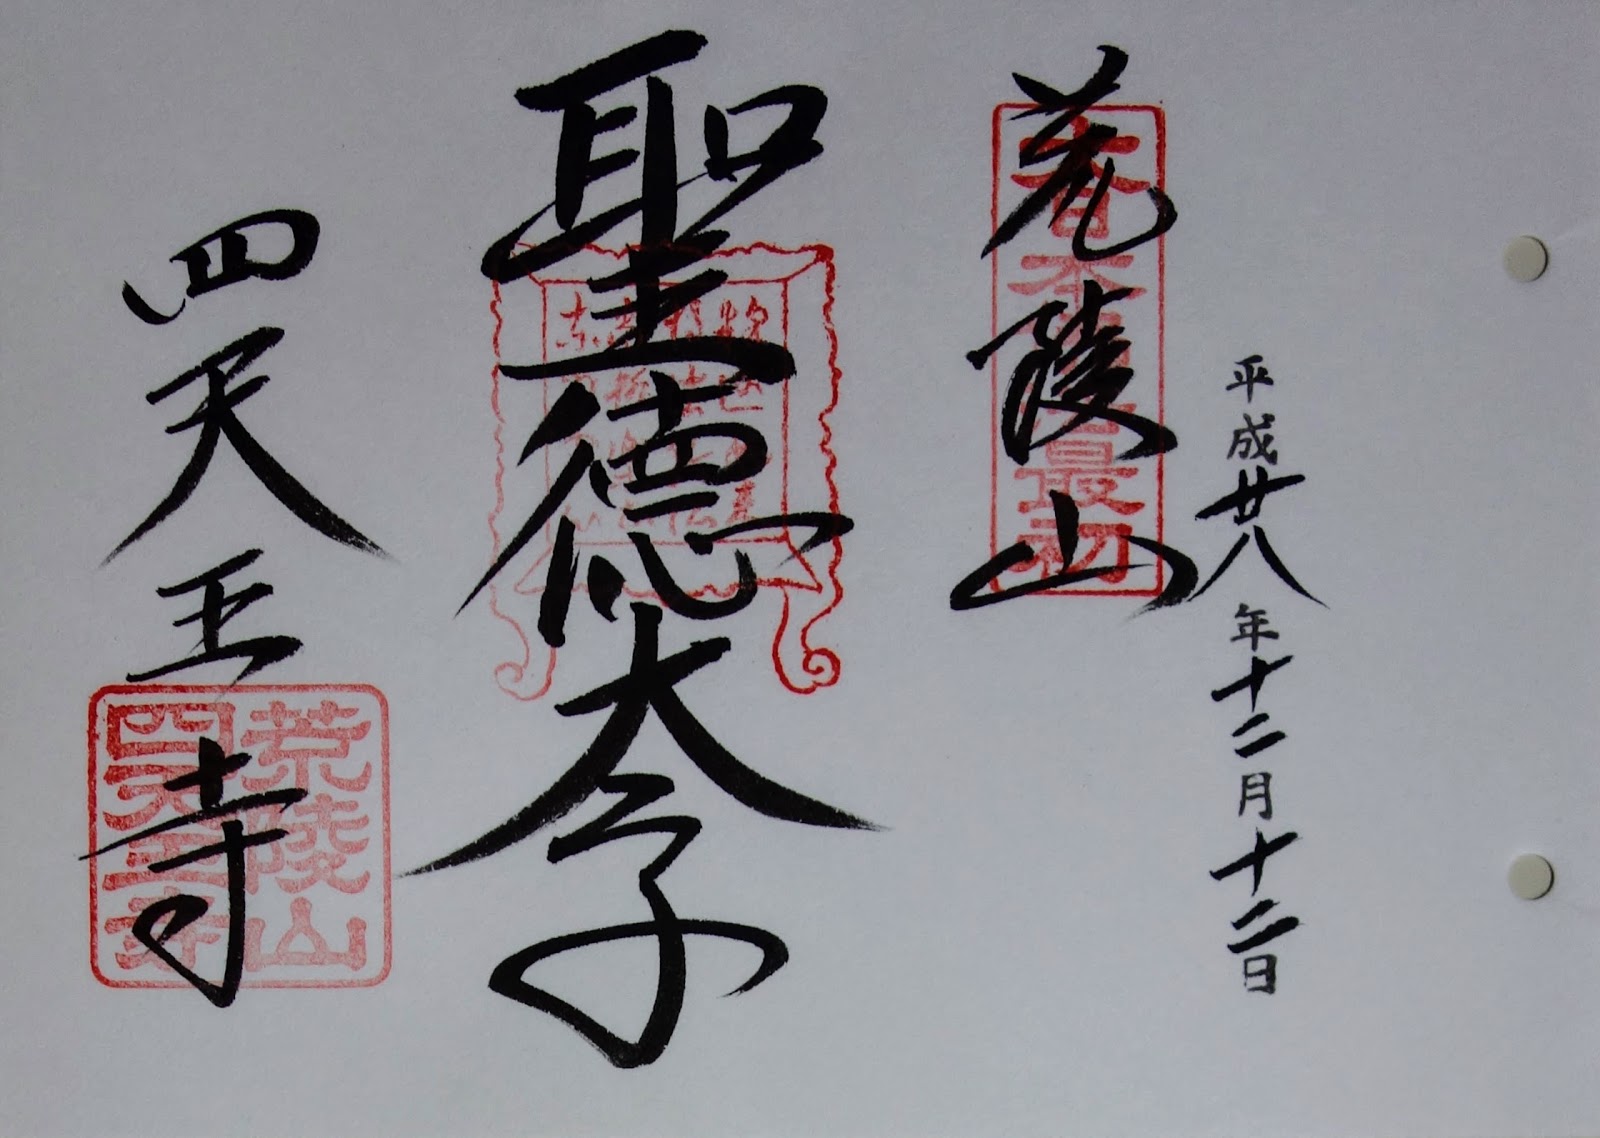 平成廿八年十二月十二日
荒陵山
大日本佛法最初
聖徳太子
四天王寺
荒陵山
四天王寺